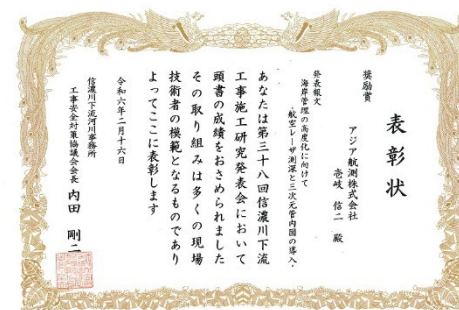 表彰状
奨励賞
アジア航測株式会社
壱岐 信二 殿
発表報文
海岸管理の高度化に向けて
-航空レーザ測深と三次元管内図の導入-
あなたは第三十八回信濃川下流
工事施工研究発表会において
頭書の成績をおさめられました
その取り組みは多くの現場
技術者の模範となるものであり
よってここに表彰します
令和六年二月十六日
信濃川下流河川事務所
工事安全対策協議会会長 内田 剛二